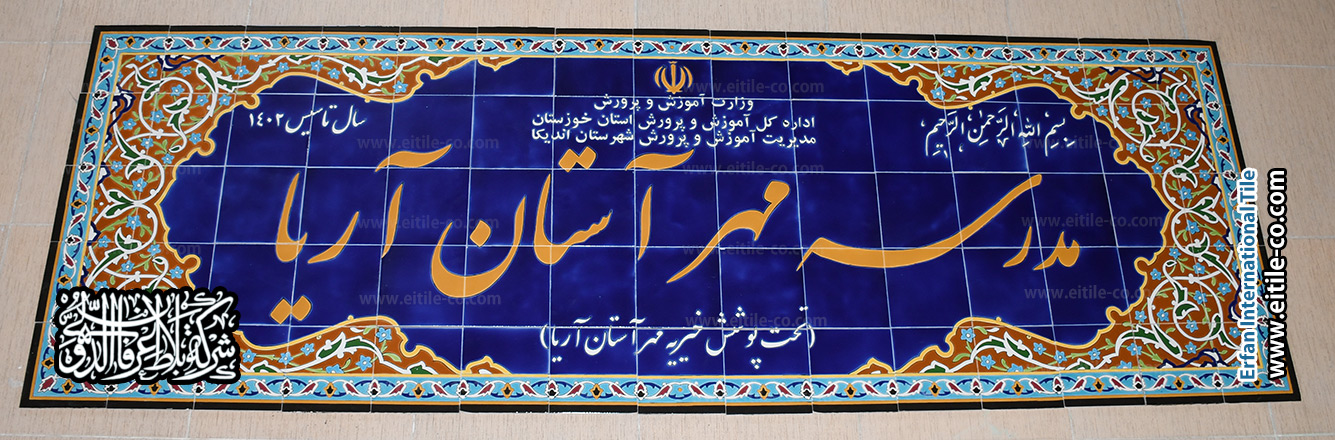 بِسْمِ اللهِ الرَّحْمنِ الرَّحِیمِ
وزارت آموزش و پرورش
اداره کل آموزش و پرورش استان خوزستان
مدیریت آموزش و پرورش شهرستان اندیکا
سال تاسیس ۱۴۰۲
مدرسه مهر آستان آریا
(تحت پوشش خیریه مهر آستان آریا)
Erfan International Tile
www.eitile-co.com